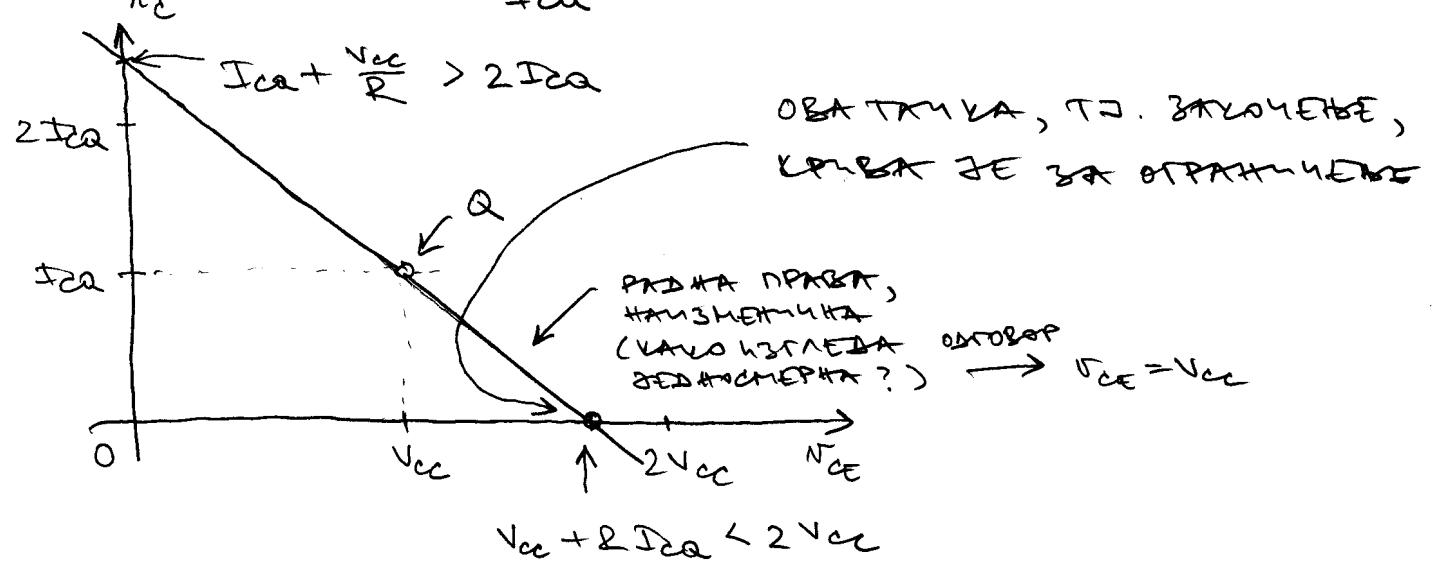 i_C
I_CQ
I_CQ + V_CC/R > 2 I_CQ
2 I_CQ
ОВА ТАЧКА, ТЈ. ЗАКОЧЕЊЕ,
КРИВА ЈЕ ЗА ОГРАНИЧЕЊЕ
Q
I_CQ
РАДНА ПРАВА,
НАИЗМЕНИЧНА
(КАКО ИЗГЛЕДА
ЈЕДНОСМЕРНА?) ОДГОВОР → v_CE = V_CC
0 V_CC 2V_CC v_CE
V_CC + R I_CQ < 2 V_CC